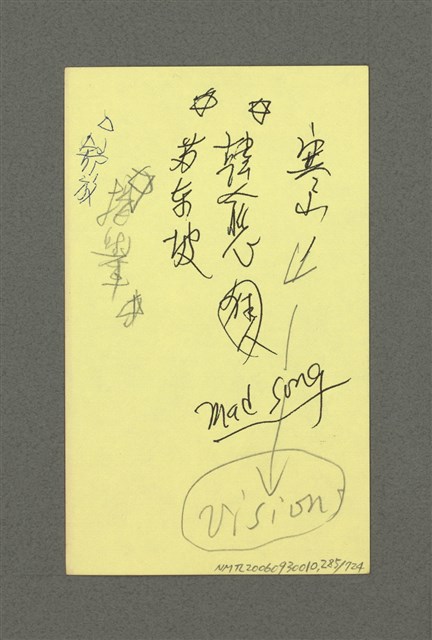 寒山
韓愈
苏东坡
舒放
mad song
vision
NMTL20060930010,285/724